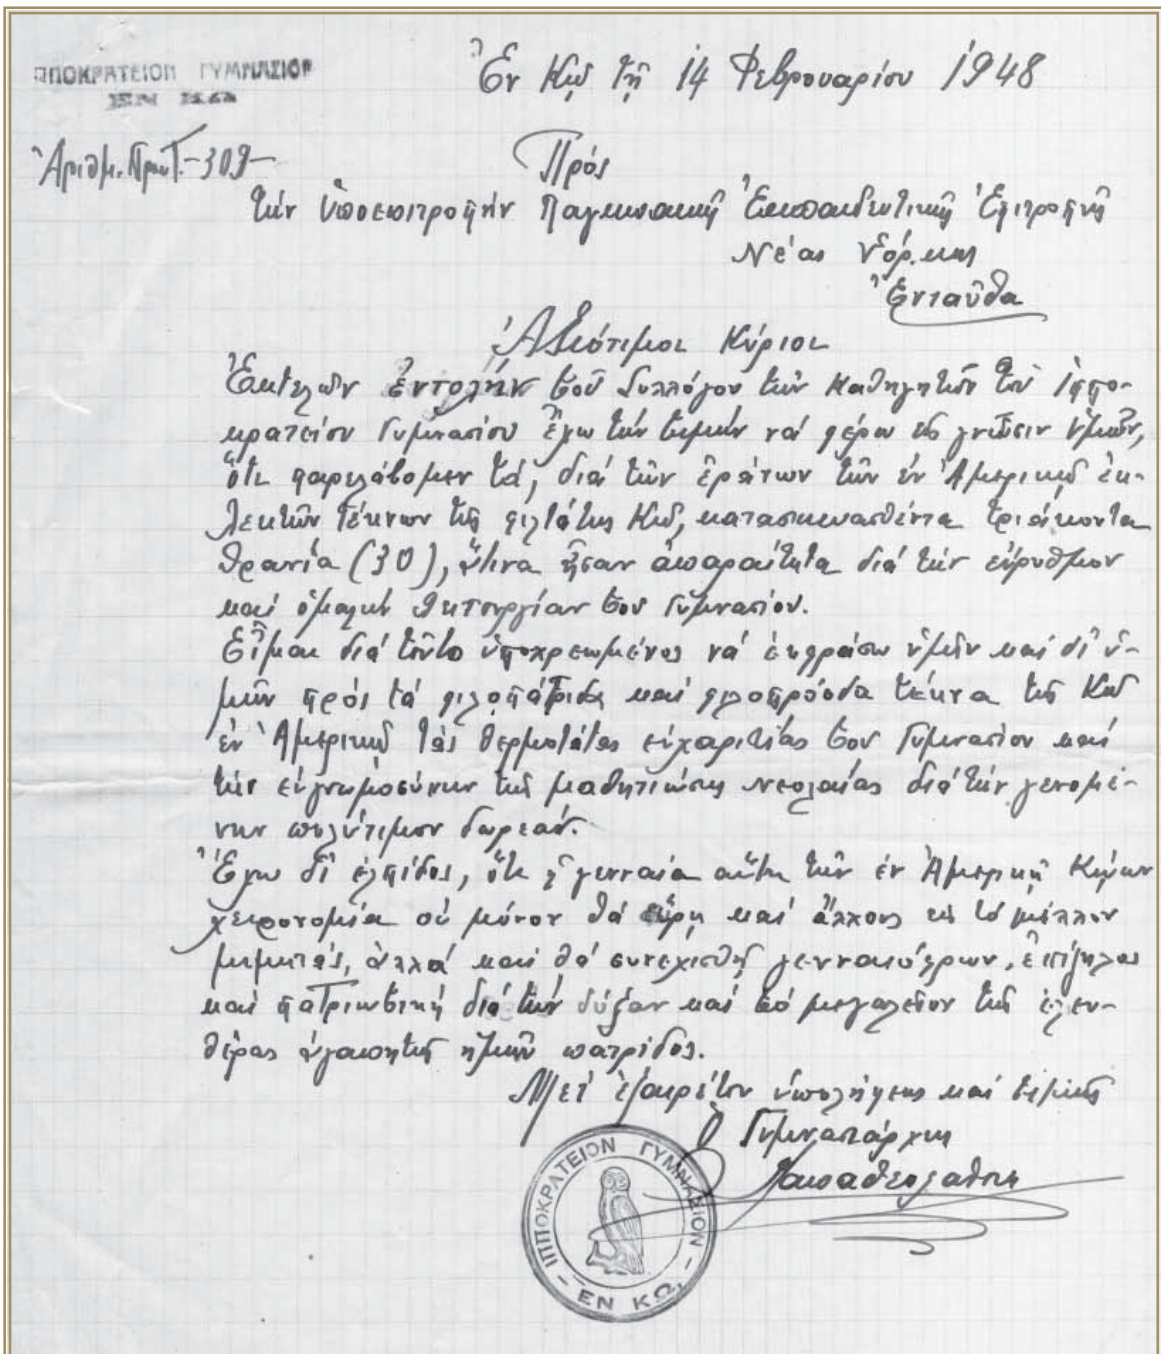 ΙΠΠΟΚΡΑΤΕΙΟΝ ΓΥΜΝΑΣΙΟΝ
ΕΝ ΚΩ
Ἐν Κῷ τῇ 14 Φεβρουαρίου 1948
Ἀριθμ. Πρωτ. -309-
Πρός
τὴν Ὑποεπιτροπὴν Παγκωακῆς Ἐκπαιδευτικῆς Ἐπιτροπῆς
Νέας Ὑόρκης
Ἐνταῦθα
Ἀξιότιμοι Κύριοι
Ἐκτελῶν ἐντολὴν τοῦ Συλλόγου τῶν Καθηγητῶν τοῦ Ἱππο-
κρατείου Γυμνασίου ἔχω τὴν τιμὴν νά φέρω εἰς γνῶσιν ὑμῶν,
ὅτι παρελάβομεν τά, διά τῶν ἐράνων τῶν ἐν Ἀμερικῇ ἐκ-
λεκτῶν τέκνων τῆς φιλτάτης Κῶ, κατασκευασθέντα τριάκοντα
θρανία (30), ἅτινα ἦσαν ἀπαραίτητα διά τὴν εὔρυθμον
καί ὁμαλὴν λειτουργίαν τοῦ Γυμνασίου.
Εἶμαι διά τοῦτο ὑποχρεωμένος νά ἐκφράσω ὑμῖν καί δι' ὑ-
μῶν πρός τά φιλοπάτριδα καί φιλοπρόοδα τέκνα τῆς Κῶ
ἐν Ἀμερικῇ τάς θερμοτάτας εὐχαριστίας τοῦ Γυμνασίου καί
τὴν εὐγνωμοσύνην τῆς μαθητιώσης νεολαίας διά τὴν γενομέ-
νην πολύτιμον δωρεάν.
Ἔχω δι' ἐλπίδος, ὅτι ἡ γενναία αὕτη τῶν ἐν Ἀμερικῇ Κῴων
χειρονομία οὐ μόνον θά εὕρῃ καί ἄλλους εἰς τό μέλλον
μιμητάς, ἀλλά καί θά συνεχισθῇ γενναιόφρων, ἐπίζηλος
καί πατριωτική διά τὴν δόξαν καί τό μεγαλεῖον τῆς ἐλευ-
θέρας ἀγαπητῆς ἡμῶν πατρίδος.
Μετ' ἐξαιρέτου ὑπολήψεως καί τιμῆς
Ὁ Γυμνασιάρχης
ΙΠΠΟΚΡΑΤΕΙΟΝ ΓΥΜΝΑΣΙΟΝ
ΕΝ ΚΩ